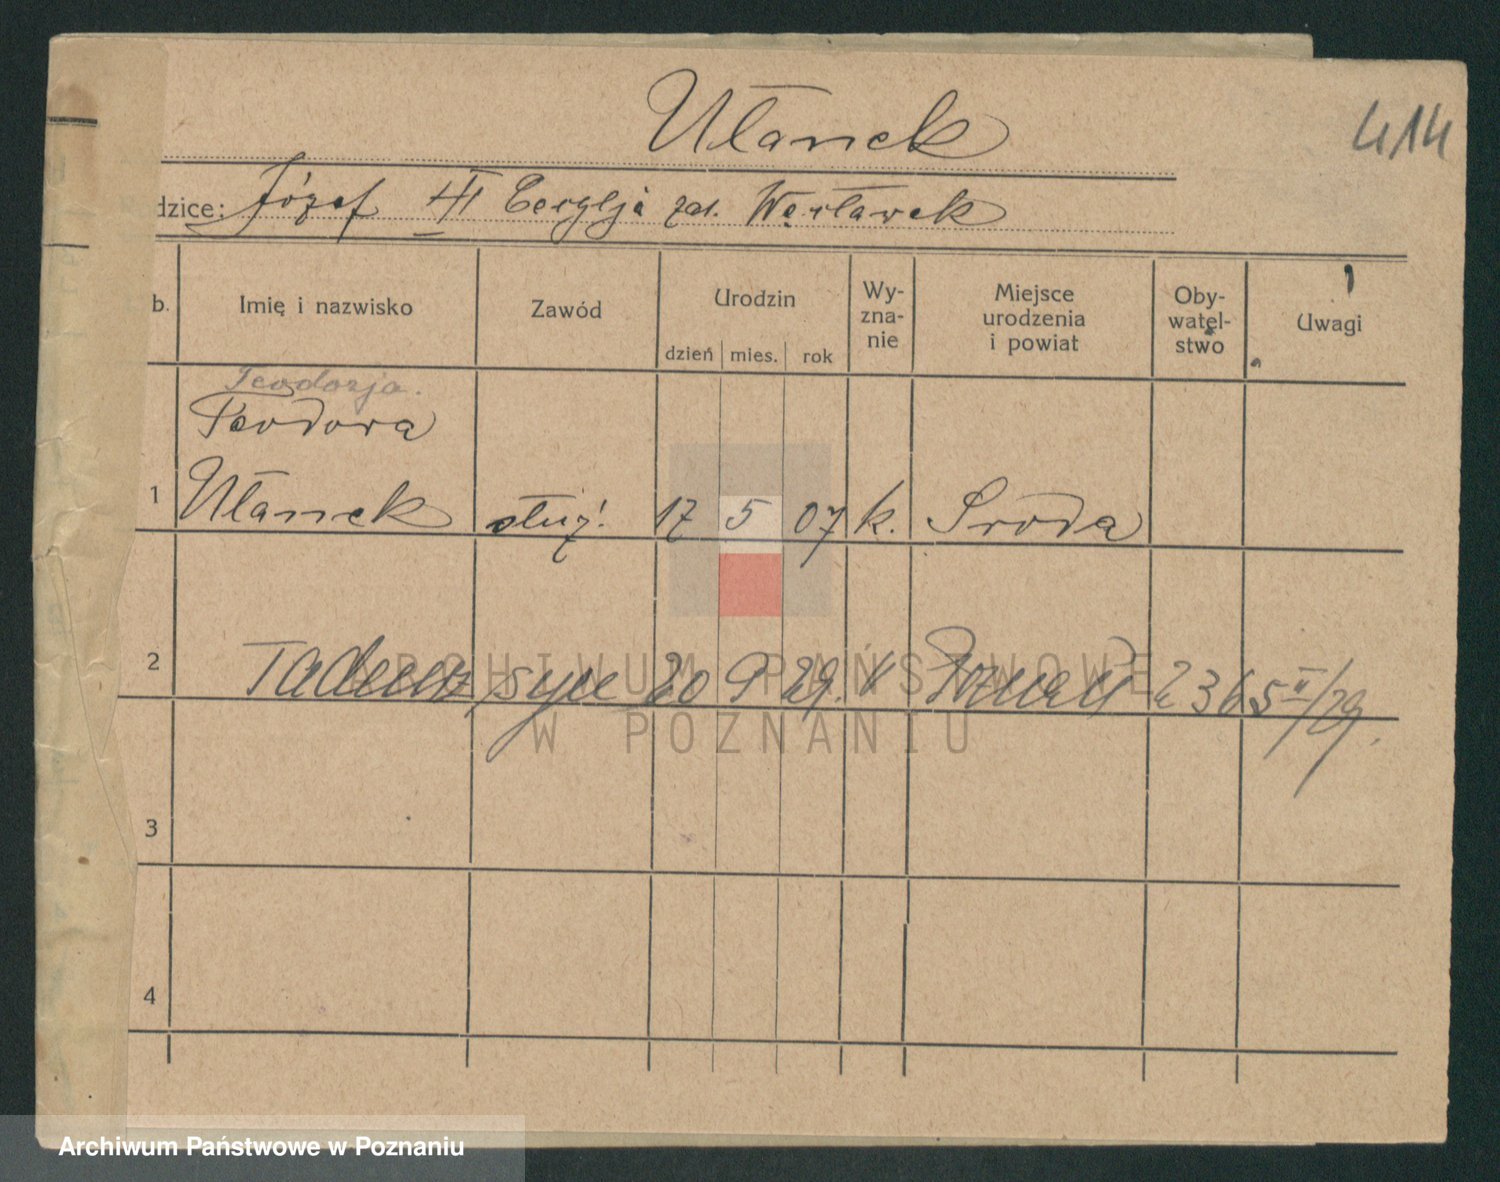 Ułanek
414
dzice: Józef Cecylja zd. Węcławek
b. Imię i nazwisko Zawód Urodzin dzień mies. rok Wy-zna-nie Miejsce urodzenia i powiat Oby-watel-stwo Uwagi
Teodorja.
Teodora
1 Ułanek służ. 17 5 07 k. Środa
2 Tadeusz syn 20 9 29. k Poznań
3
4
ARCHIWUM PAŃSTWOWE
W POZNANIU
Archiwum Państwowe w Poznaniu